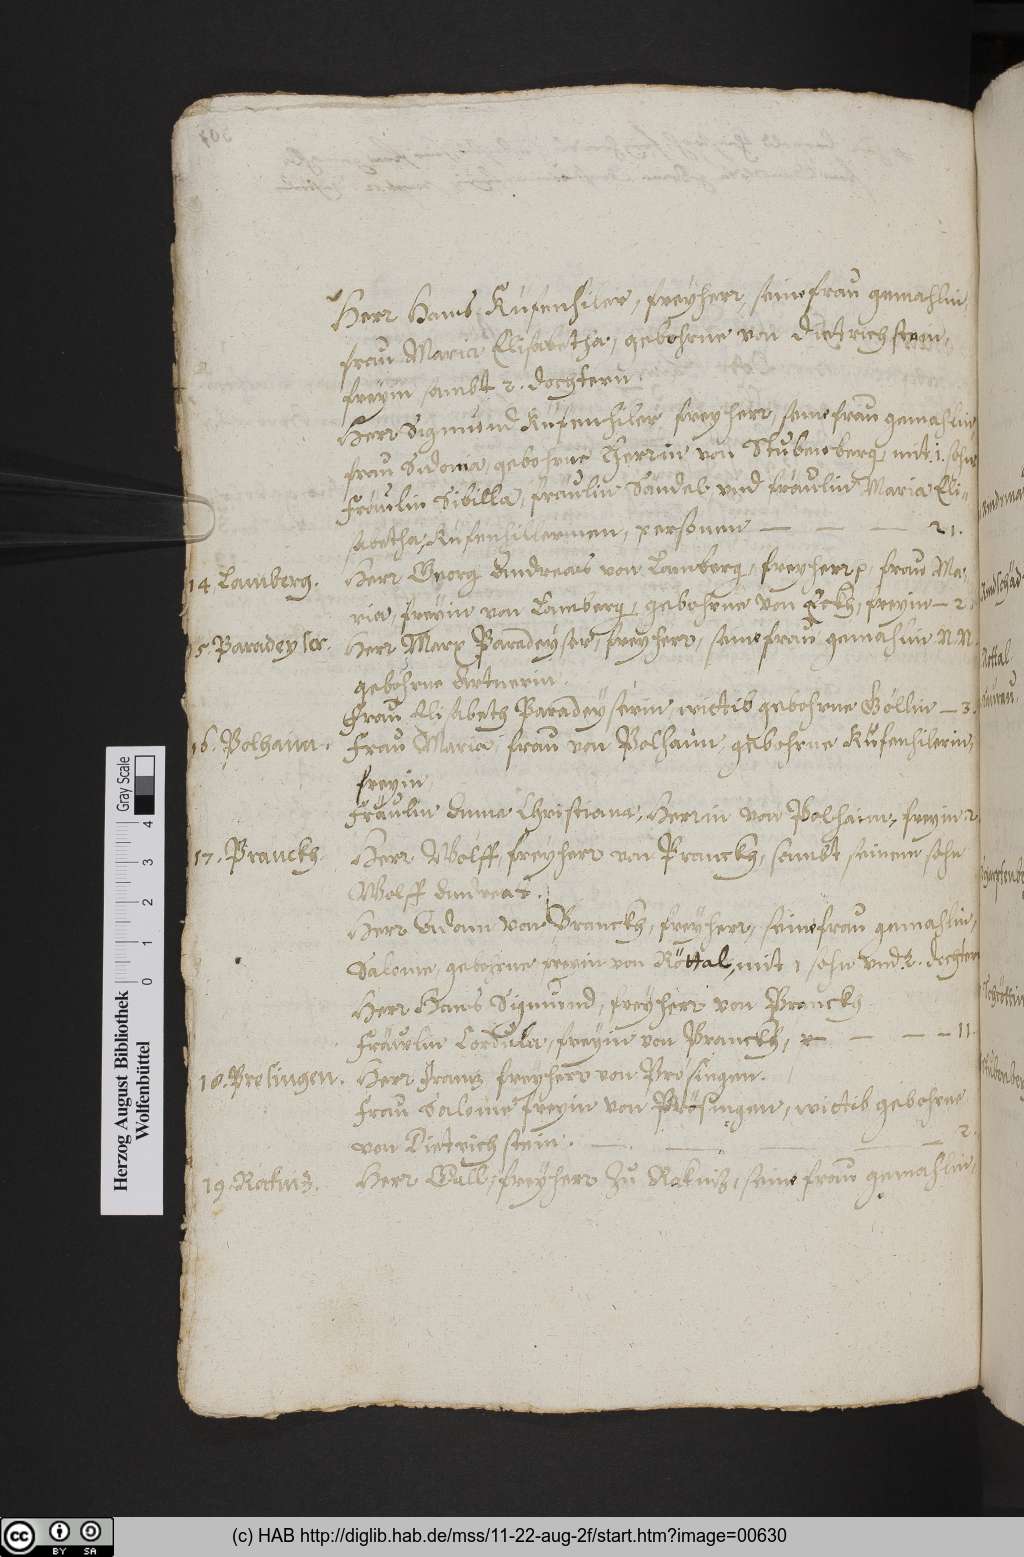 Herr Hans Küfenhiler, freyherr, seine frau gemahlin,
frau Maria Elisabetha, gebohrne von Dietrichstein,
freyin sambt 2. dochtern.
Herr Sigmund Küfenhiler, freyherr, seine frau gemahlin
frau Sidonia, gebohrne Herrin von Stubenberg, mit 1. sohn
Fräulin Sibilla, fräulin und fräulin Maria Eli-
sabetha, Küfenhillerinen, personen — — — 21.
14. Lamberg. Herr Georg Andreas von Lamberg, freyherr, frau Ma-
ria, freyin von Lamberg, gebohrne von freyin — 2.
15. Paradeyser. Herr Marx Paradeyser, freyherr, seine frau gemahlin N.N.
gebohrne
Frau Elisabeth Paradeyserin, wittib gebohrne Göllin — 3.
16. Polhaim. Frau Maria, frau von Polhaim, gebohrne Küfenhilerin,
freyin,
Fräulin Anna Christiana, Herrin von Polhaim, freyin 2
17. Pranckh. Herr Wolff, freyherr von Pranckh, sambt seinem sohn
Wolff Andreas.
Herr Adam von Pranckh, freyherr, seine frau gemahlin,
Salome, gebohrne freyin von Röttal, mit 1 sohn und 2. dochter
Herr Hans Sigmund, freyherr von Pranckh
Fräulin Cordula, freyin von Pranckh, — — — 11.
18. Presingen. Herr Franz freyherr von Prösingen.
Frau Salome freyin von Prösingen, wittib gebohrne
von Dietrichstein. — — — 2.
19. Racknitz. Herr Gall, freyherr zu Raknitz, seine frau gemahlin,
Herzog August Bibliothek
Wolfenbüttel
0 1 2 3 4
Gray Scale
cc BY SA
(c) HAB http://diglib.hab.de/mss/11-22-aug-2f/start.htm?image=00630